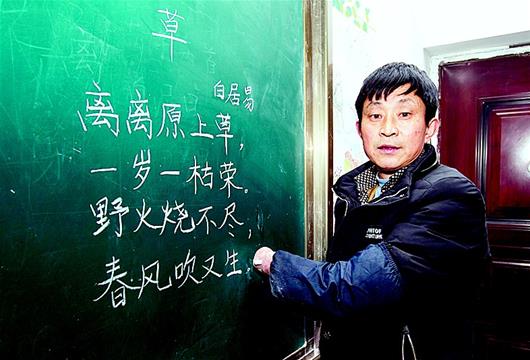 草
白居易
离离原上草，
一岁一枯荣。
野火烧不尽，
春风吹又生。